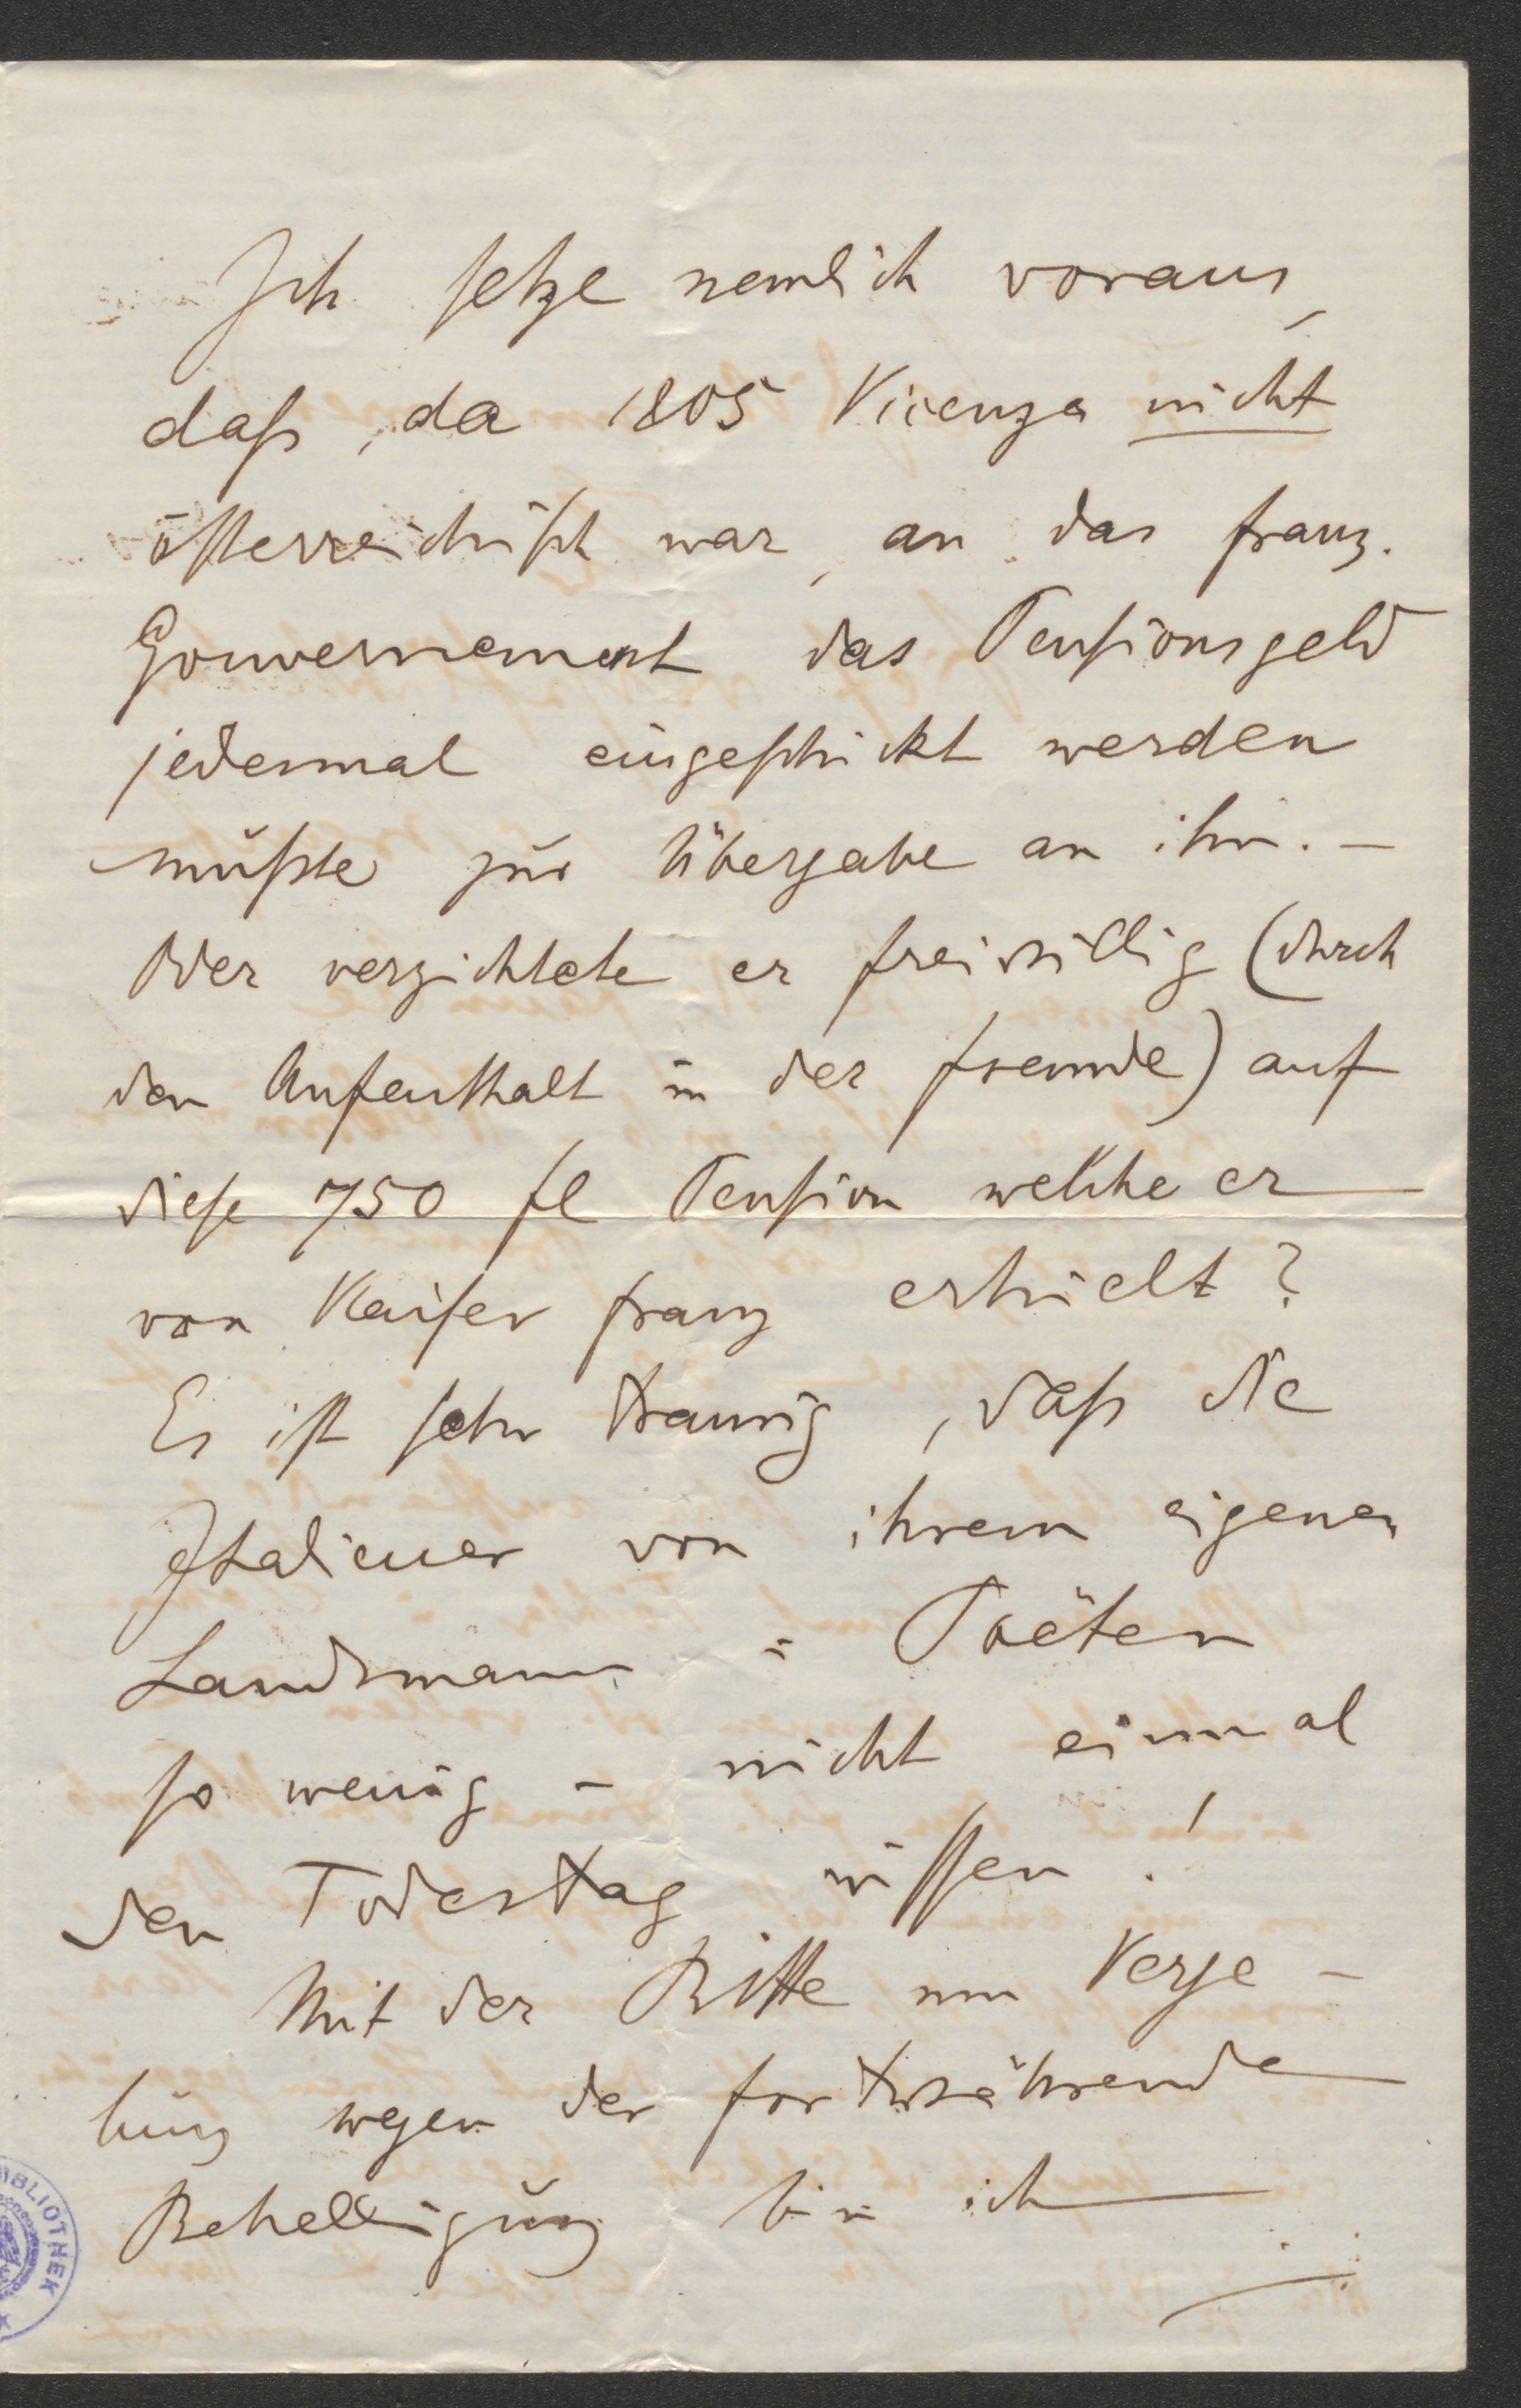 Ich setze nemlich voraus,
daß, da 1805 Vicenza nicht
österreichisch war, an das franz.
Gouvernement das Pensionsgeld
jedesmal eingeschickt werden
müßte zur Übergabe an ihn. –
Oder verzichtete er freiwillig (durch
den Aufenthalt in der Fremde) auf
diese 750 fl Pension welche er
von Kaiser Franz erhielt?
Es ist sehr traurig, daß die
Italiener von ihrem eigenen
Landsmann = Poëten
so wenig – nicht einmal
den Todestag wissen!
Mit der Bitte um Verge-
bung wegen der fortwährende
Behelligung bin ich
BIBLIOTHEK